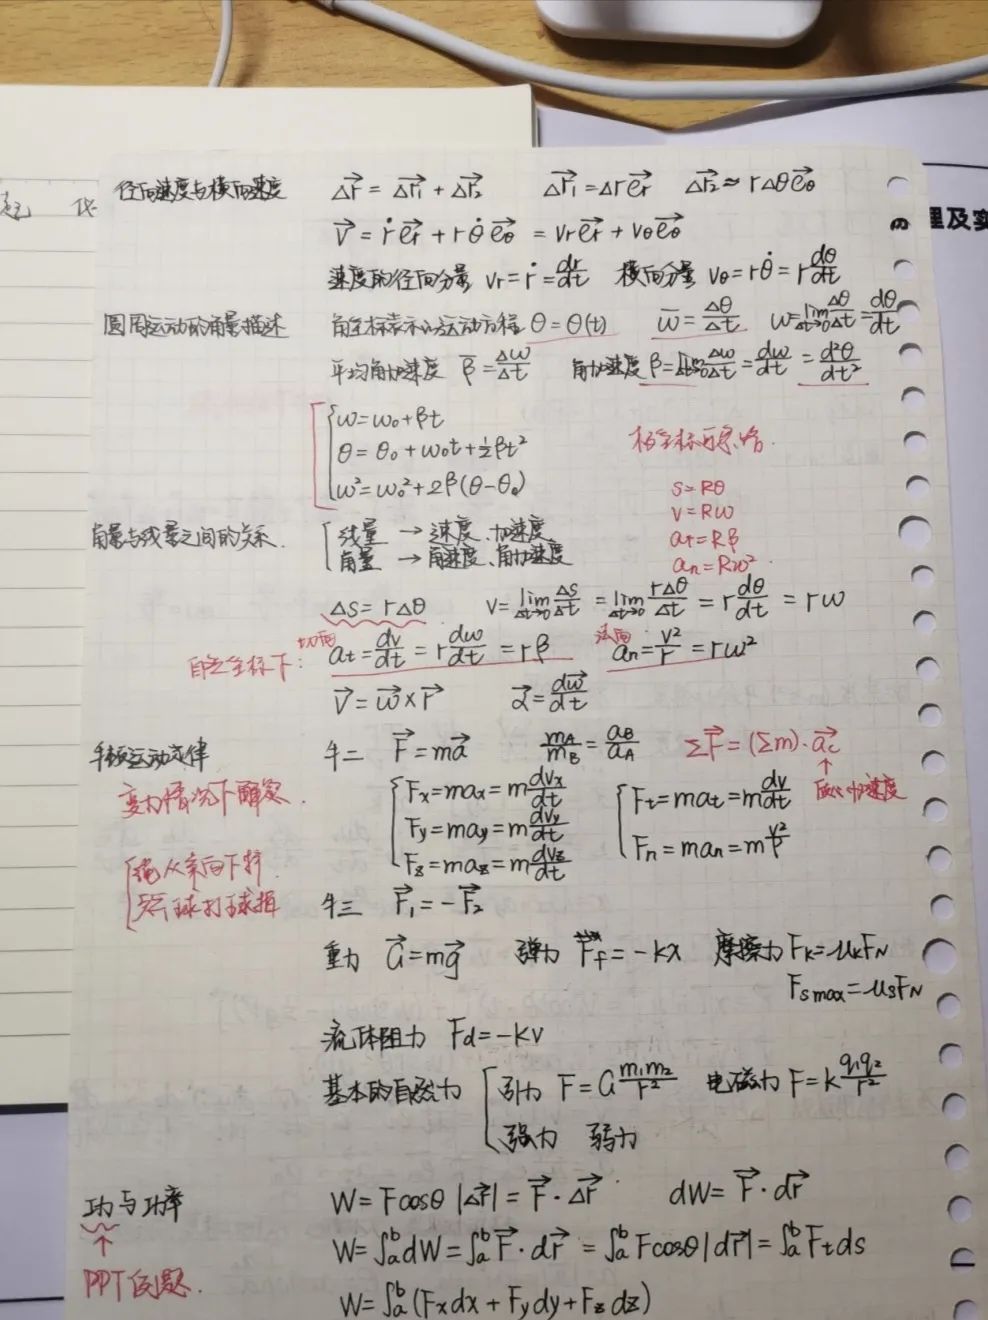 径向速度与横向速度 Δr⃗ = Δr⃗₁ + Δr⃗₂ Δr⃗₁ = Δr e⃗r Δr⃗₂ ≈ rΔθ e⃗θ
v⃗ = ṙ e⃗r + r θ̇ e⃗θ = vr e⃗r + vθ e⃗θ
理及实
速度的径向分量 vr = ṙ = dr/dt 横向分量 vθ = rθ̇ = r dθ/dt
圆周运动的角量描述 角坐标表示的运动方程 θ = θ(t) ω̄ = Δθ/Δt ω = lim Δt→0 Δθ/Δt = dθ/dt
平均角加速度 β̄ = Δω/Δt 角加速度 β = lim Δω/Δt = dω/dt = d²θ/dt²
ω = ω₀ + βt
θ = θ₀ + ω₀t + ½βt²
ω² = ω₀² + 2β(θ - θ₀)
极坐标
s = Rθ
v = Rω
at = Rβ
an = Rω²
角量与线量之间的关系. 线量 → 速度、加速度
角量 → 角速度、角加速度
Δs = rΔθ v = lim Δt→0 Δs/Δt = lim Δt→0 rΔθ/Δt = r dθ/dt = rω
自然坐标下: 切向 at = dv/dt = r dω/dt = rβ 法向 an = v²/r = rω²
v⃗ = ω⃗ × r⃗ α⃗ = dω⃗/dt
牛顿运动定律 牛二 F⃗ = ma⃗ mA/mB = aB/aA ΣF⃗ = (Σm)·a⃗c
↑ 质心加速度
变力情况下 Fx = max = m dvx/dt Ft = mat = m dv/dt
Fy = may = m dvy/dt Fn = man = m v²/ρ
Fz = maz = m dvz/dt
牛三 F⃗₁ = -F⃗₂
重力 G⃗ = mg⃗ 弹力 F⃗f = -kx 摩擦力 Fk = μkFN
Fsmax = μsFN
流体阻力 Fd = -kv
基本的自然力 引力 F = G m₁m₂/r² 电磁力 F = k q₁q₂/r²
强力 弱力
功与功率 W = Fcosθ |Δr⃗| = F⃗·Δr⃗ dW = F⃗·dr⃗
↑ W = ∫ₐᵇ dW = ∫ₐᵇ F⃗·dr⃗ = ∫ₐᵇ Fcosθ|dr⃗| = ∫ₐᵇ Ftds
PPT例题. W = ∫ₐᵇ (Fxdx + Fydy + Fzdz)